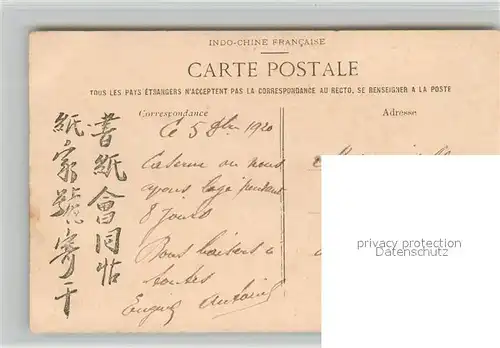 INDO-CHINE FRANÇAISE
CARTE POSTALE
TOUS LES PAYS ÉTRANGERS N'ACCEPTENT PAS LA CORRESPONDANCE AU RECTO, SE RENSEIGNER A LA POSTE
Correspondance
Adresse
Le 5 1920
Caserne ou nous
avons logé pendant
8 jours
Bons baisers a
toutes
書紙會同帖
紙家號寄干
privacy protection
Datenschutz